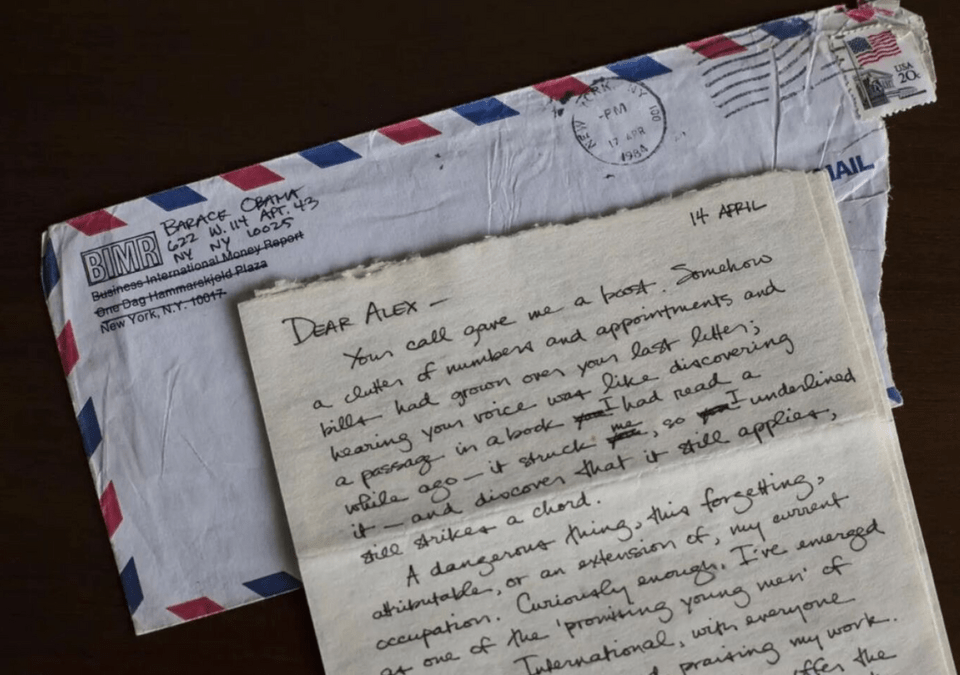 USA
20c
NEW YORK, NY 100
-PM
17 APR
1984
MAIL
BARACK OBAMA
622 W. 114 APT. 43
NY NY 10025
BIMR
Business International Money Report
One Dag Hammarskjold Plaza
New York, N.Y. 10017
14 APRIL
DEAR ALEX –
Your call gave me a boost. Somehow
a clutter of numbers and appointments and
bills had grown over your last letter;
hearing your voice was like discovering
a passage in a book I had read a
while ago – it struck me, so I underlined
it – and discover that it still applies,
still strikes a chord.
A dangerous thing, this forgetting,
attributable, or an extension of, my current
occupation. Curiously enough, I've emerged
as one of the 'promising young men' of
International, with everyone
praising my work.
offer the